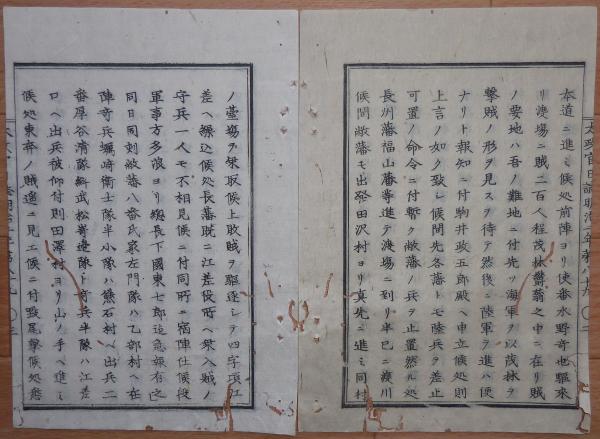 本道ニ進ミ候処前陣ヨリ使番水野奇也駆来
リ渡場ニ賊二百人程茂林欝蓊之中ニ在リ賊
ノ要地ハ吾ノ難地ニ付先ツ海軍ヲ以茂林ヲ
撃賊ノ形ヲ見スヲ待テ然後ニ陸軍ヲ進ハ便
ナリト報知ニ付駒井政五郎殿ヘ申立候処則
可置ノ命令ニ付暫ク敝藩ノ兵ヲ止置然ル処
上言ノ如ク致シ候間先各藩トモ陸兵ヲ差止
長州藩福山藩等進テ渡場ニ到リ半已ニ渡川
候間敝藩モ出発田沢村ヨリ真先ニ進ミ同村
ノ臺場ヲ乗取候上敗賊ヲ駆逐シテ四字頃江
差ヘ繰込候処長藩既ニ江差役所ヘ乗入賊ノ
守兵一人モ不相見候ニ付同所ニ宿陣仕候役
軍事方多浪ヨリ総長下國東七郎追急報有之
同日同刻敝藩八番氏家左門隊ハ乙部村ヘ在
陣奇兵蠣崎衛士隊半小隊ハ熊石村ヘ出兵二
番厚谷清隊糾武松峯造隊ト奇兵半隊ハ江差
口ヘ出兵被仰付則田澤村ヨリ山ノ手ヘ進ミ
候処東奔ノ賊遥ニ見エ候ニ付跡尾撃候処悉